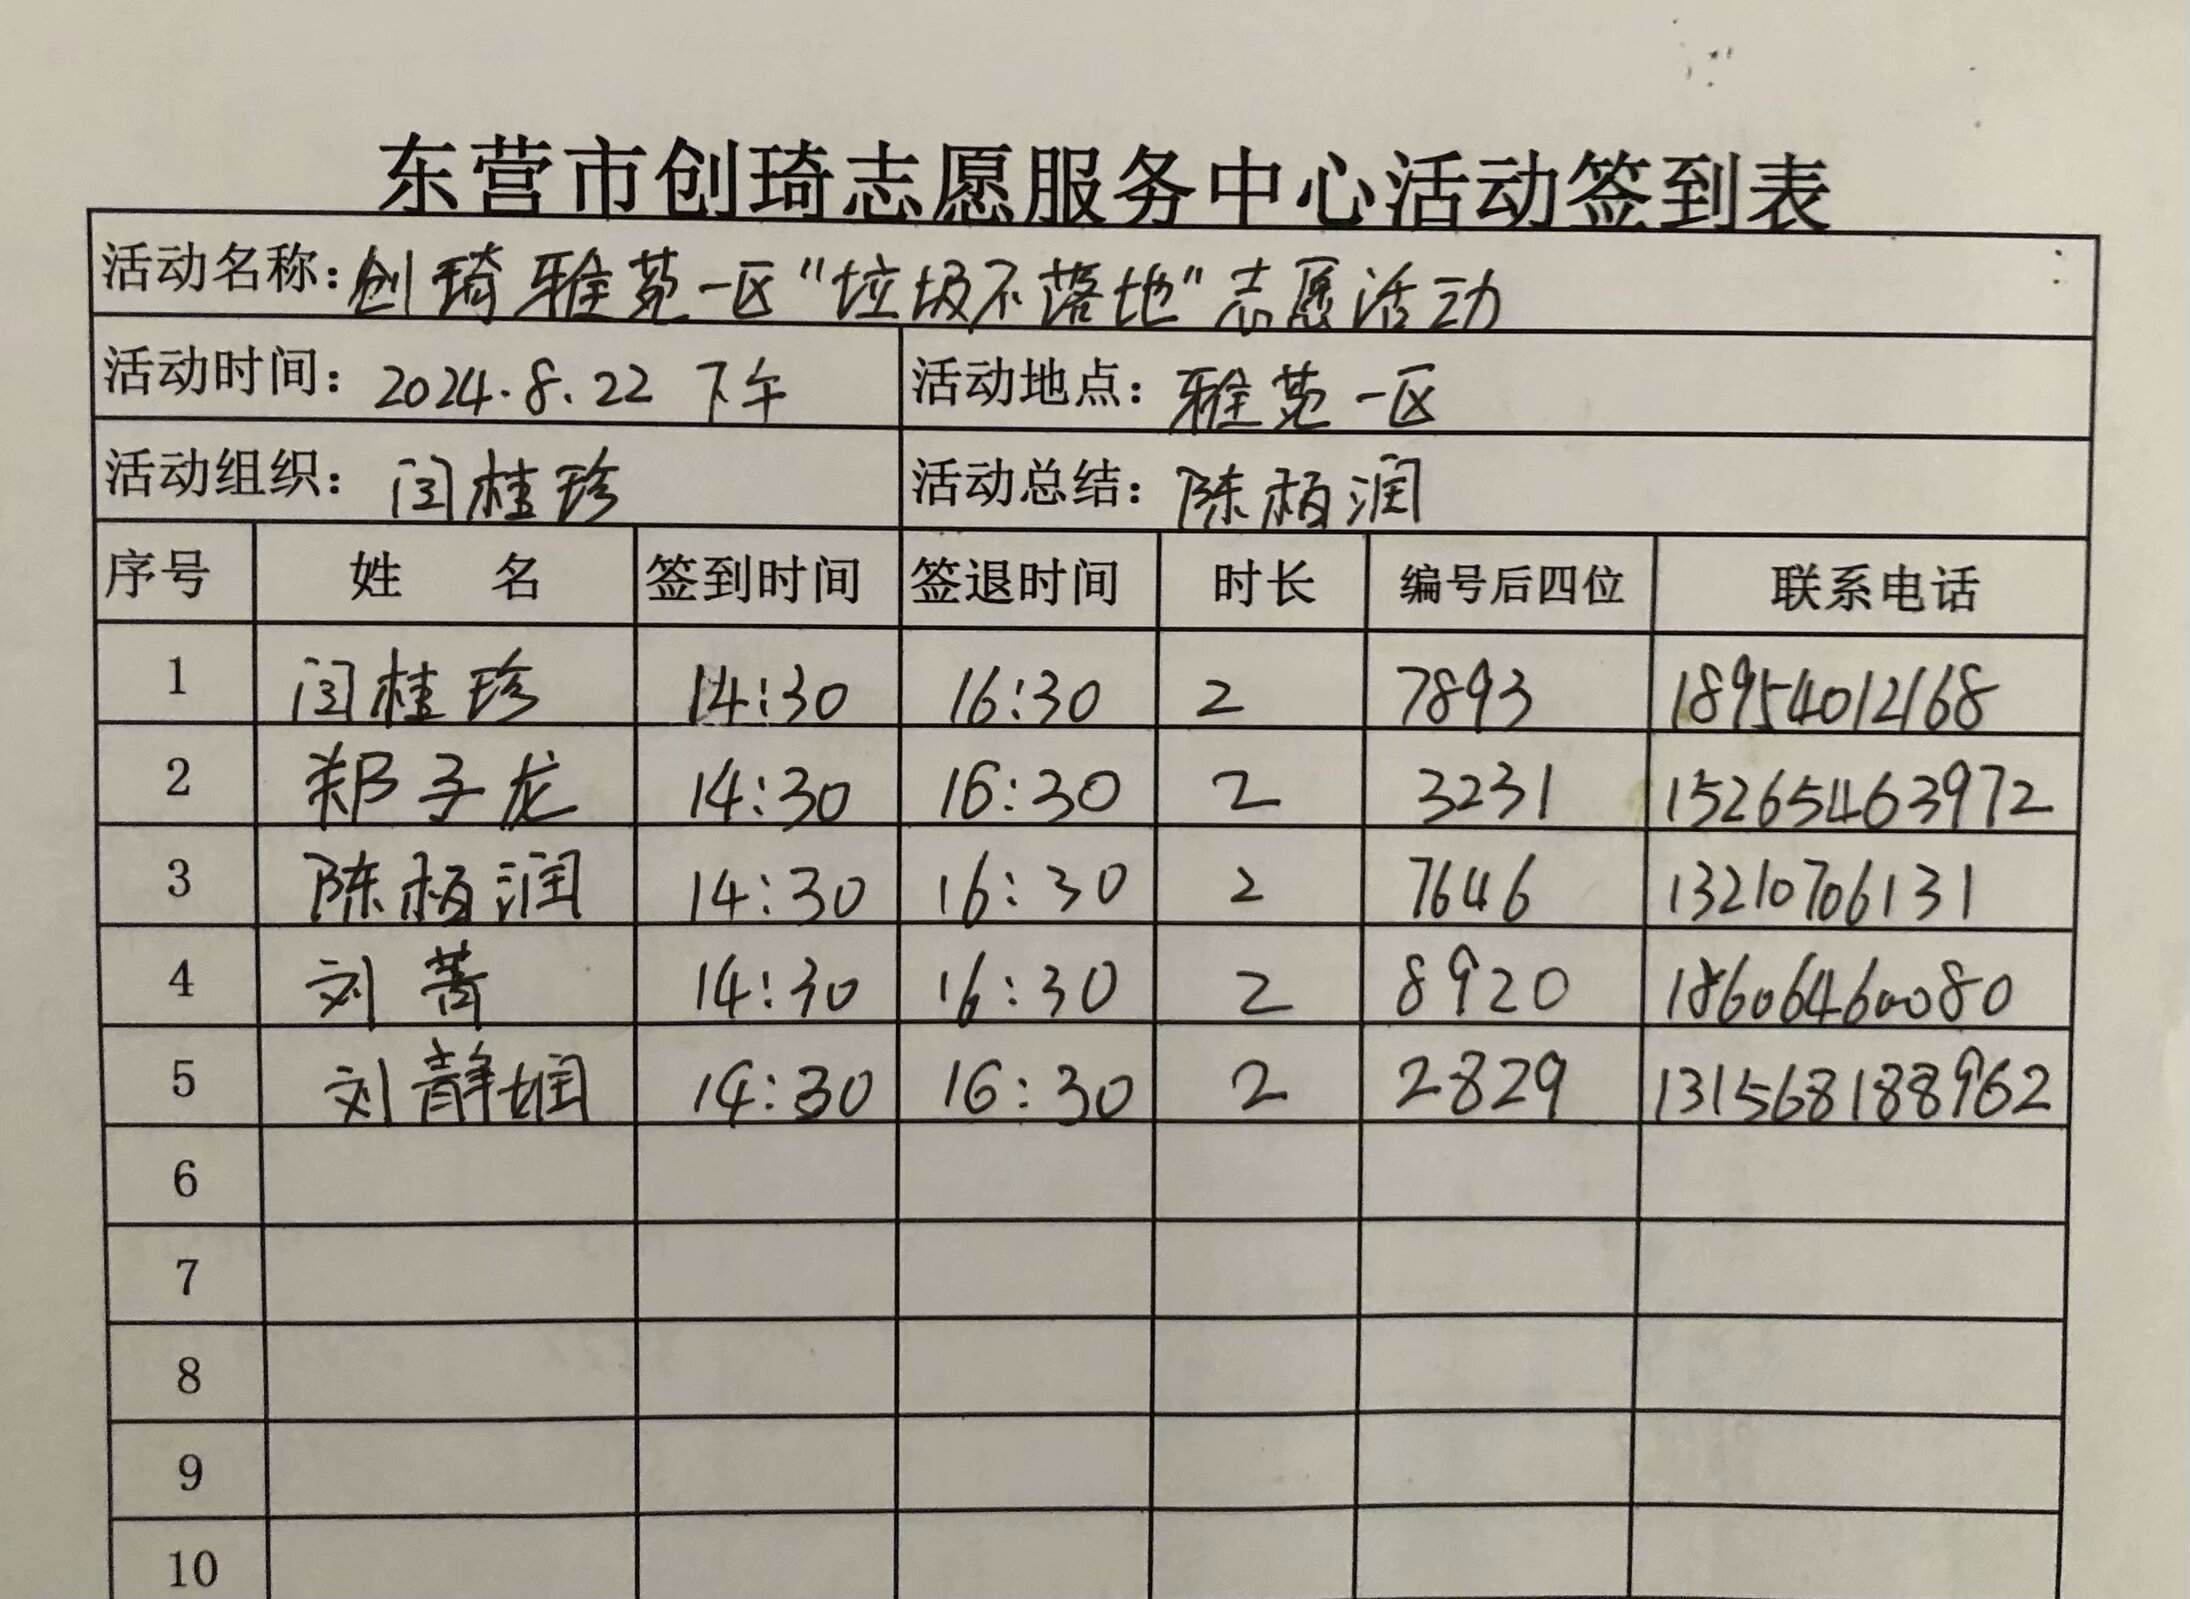 东营市创琦志愿服务中心活动签到表
活动名称：创琦雅苑一区“垃圾不落地”志愿活动
活动时间：2024.8.22 下午 活动地点：雅苑一区
活动组织：闫桂珍 活动总结：陈栢润
序号 姓 名 签到时间 签退时间 时长 编号后四位 联系电话
1 闫桂珍 14:30 16:30 2 7893 18954012168
2 郑子龙 14:30 16:30 2 3231 15265463972
3 陈栢润 14:30 16:30 2 7646 13210706131
4 刘菁 14:30 16:30 2 8920 18606460080
5 刘静娴 14:30 16:30 2 2829 131568188962
6
7
8
9
10